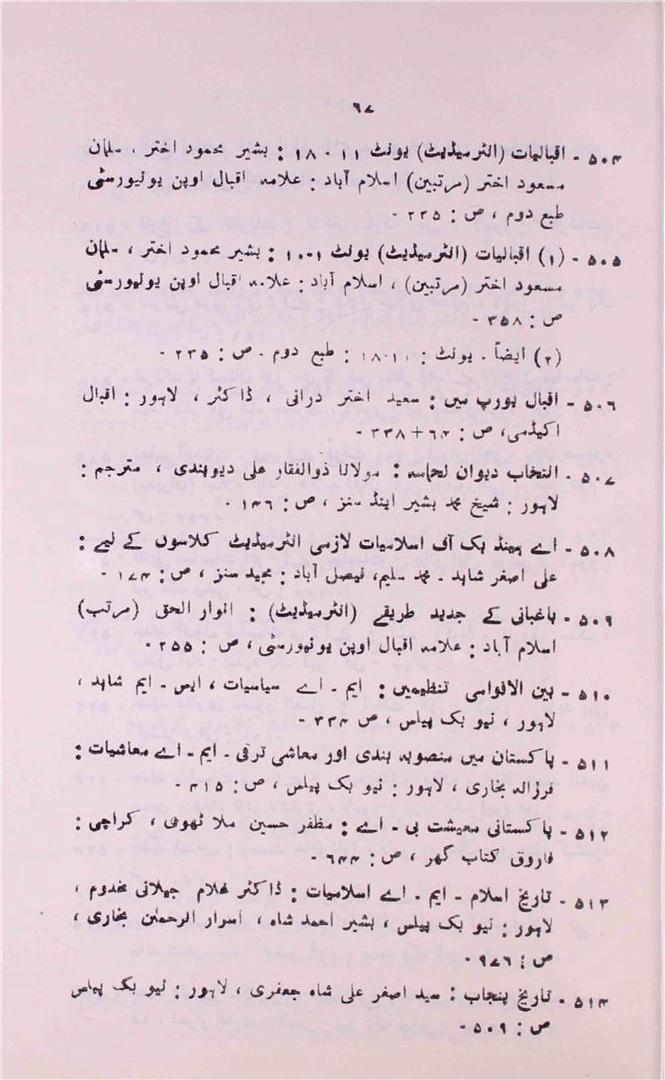 ۶۷
۵۰۴ - اقبالیات (انٹرمیڈیٹ) یونٹ ۱۱ - ۱۸ : بشیر محمود اختر ، سلمان
مسعود اختر (مرتبین) اسلام آباد : علامہ اقبال اوپن یونیورسٹی
طبع دوم ، ص : ۲۳۵ -
۵۰۵ - (۱) اقبالیات (انٹرمیڈیٹ) یونٹ ۱-۱۰ : بشیر محمود اختر ، سلمان
مسعود اختر (مرتبین) ، اسلام آباد : علامہ اقبال اوپن یونیورسٹی
ص : ۳۵۸ -
(۲) ایضاً - یونٹ : ۱۱-۱۸ : طبع دوم - ص : ۲۳۵ -
۵۰۶ - اقبال یورپ میں : سعید اختر درانی ، ڈاکٹر ، لاہور : اقبال
اکیڈمی، ص : ۶۴ + ۳۳۸ -
۵۰۷ - انتخاب دیوان لحماسہ : مولانا ذوالفقار علی دیوبندی ، مترجم :
لاہور : شیخ محمد بشیر اینڈ سنز ، ص : ۱۴۶ -
۵۰۸ - اے ہینڈ بک آف اسلامیات لازمی انٹرمیڈیٹ کلاسوں کے لیے :
علی اصغر شاہد - محمد سلیم، فیصل آباد : مجید سنز ، ص : ۱۷۴ -
۵۰۹ - باغبانی کے جدید طریقے (انٹرمیڈیٹ) : انوار الحق (مرتب)
اسلام آباد : علامہ اقبال اوپن یونیورسٹی ، ص : ۲۵۵ -
۵۱۰ - بین الاقوامی تنظیمیں : ایم - اے سیاسیات ، ایس - ایم شاہد ،
لاہور ، نیو بک پیلس ، ص ۳۳۴ -
۵۱۱ - پاکستان میں منصوبہ بندی اور معاشی ترقی - ایم - اے معاشیات :
فرزالہ بخاری ، لاہور : نیو بک پیلس ، ص : ۴۱۵ -
۵۱۲ - پاکستانی معیشت بی - اے : مظفر حسین ملاٹھوی ، کراچی :
فاروق کتاب گھر ، ص : ۶۴۴ -
۵۱۳ - تاریخ اسلام - ایم - اے اسلامیات : ڈاکٹر غلام جیلانی مخدوم ،
لاہور : نیو بک پیلس ، بشیر احمد شاہ ، اسرار الرحمٰن بخاری ،
ص : ۹۷۶ -
۵۱۴ - تاریخ پنجاب : سید اصغر علی شاہ جعفری ، لاہور : نیو بک پیلس
ص : ۵۰۹ -